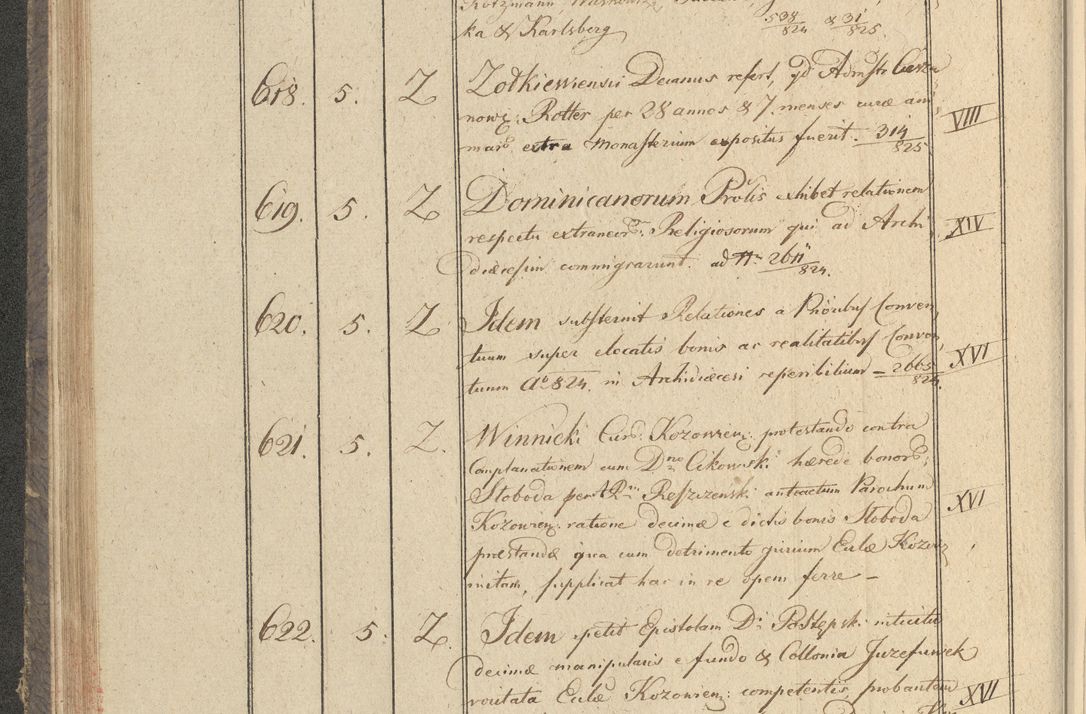 Kotzmann
ka & Karlsberg 538/824 & 31/825.
618. 5. Z Zołkiewiensis Decanus refert, qd Admstr
now: Rotter per 28 annos & 7 menses curæ ani
mar: extra Monasterium expositus fuerit. 314/825 VIII
619. 5. Z Dominicanorum Prolis exhibet relationem
respectu extraneor: Religiosorum qui ad Archi XIV
diœcesim commigrarunt. ad N. 2611/824.
620. 5. Z Idem substernit Relationes a Prioribus Conven
tuum super elocatis bonis ac realitatibus Conven XVI
tuum Aº 824. in Archidiœcesi reperibilium – 2665/824.
621. 5. Z. Winnicki Cur. Kozowien: protestando contra
Complanationem cum Dno Cikowski hærede bonor:
Słoboda per anteactum Parochum XVI
Kozowien: ratione decimæ e dictis bonis Słoboda
præstandæ qua cum detrimento jurium Eclæ Kozow
initam, supplicat hac in re opem ferre –
622. 5. Z. Idem petit Epistolam D. Postępski intuitu
decimæ manipularis e fundo & Collonia Juzefuwek
Eclæ Kozowien: competentis, probantem XVI